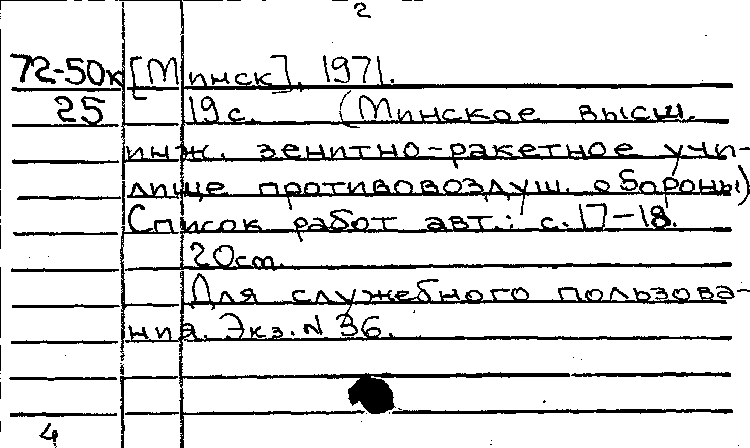 2
72-50к [Минск], 1971.
25 19 с. (Минское высш.
инж. зенитно-ракетное учи-
лище противовоздуш. обороны)
Список работ авт.: с. 17-18.
20 cm.
Для служебного пользова-
ния. Экз. N 36.
4